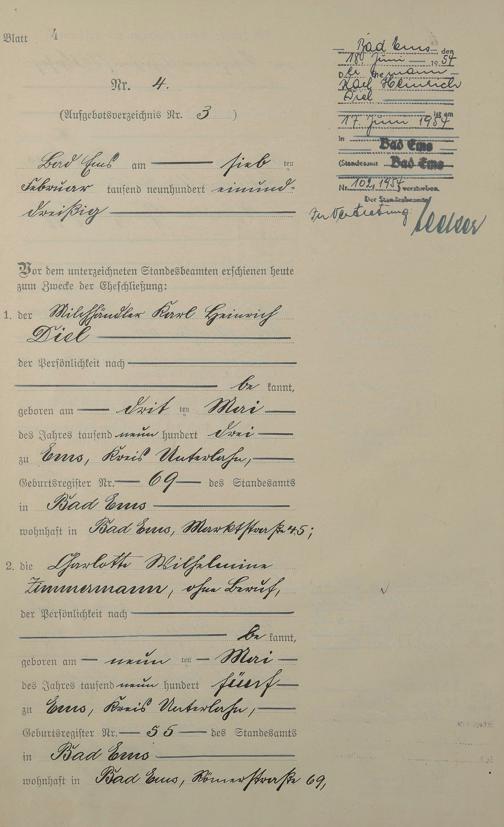 Blatt 4
Nr. 4.
(Aufgebotsverzeichnis Nr. 3)
Bad Ems am sieb ten
Februar tausend neunhundert einund-
dreißig
Vor dem unterzeichneten Standesbeamten erschienen heute
zum Zwecke der Eheschließung:
1. der Milchhändler Karl Heinrich
Diel
der Persönlichkeit nach
be kannt,
geboren am drit ten Mai
des Jahres tausend neun hundert drei
zu Ems, Kreis Unterlahn,
Geburtsregister Nr. 69 des Standesamts
in Bad Ems
wohnhaft in Bad Ems, Marktstraße 45;
2. die Charlotte Wilhelmine
Zimmermann, ohne Beruf,
der Persönlichkeit nach
be kannt,
geboren am neun ten Mai
des Jahres tausend neun hundert fünf
zu Ems, Kreis Unterlahn,
Geburtsregister Nr. 55 des Standesamts
in Bad Ems
wohnhaft in Bad Ems, Römerstraße 69,
Bad Ems den
18. Juni 1954
Der Ehemann
Karl Heinrich
Diel
ist am
17. Juni 1954
in Bad Ems
(Standesamt Bad Ems
Nr. 102/1954) verstorben.
Der Standesbeamte
In Vertretung: